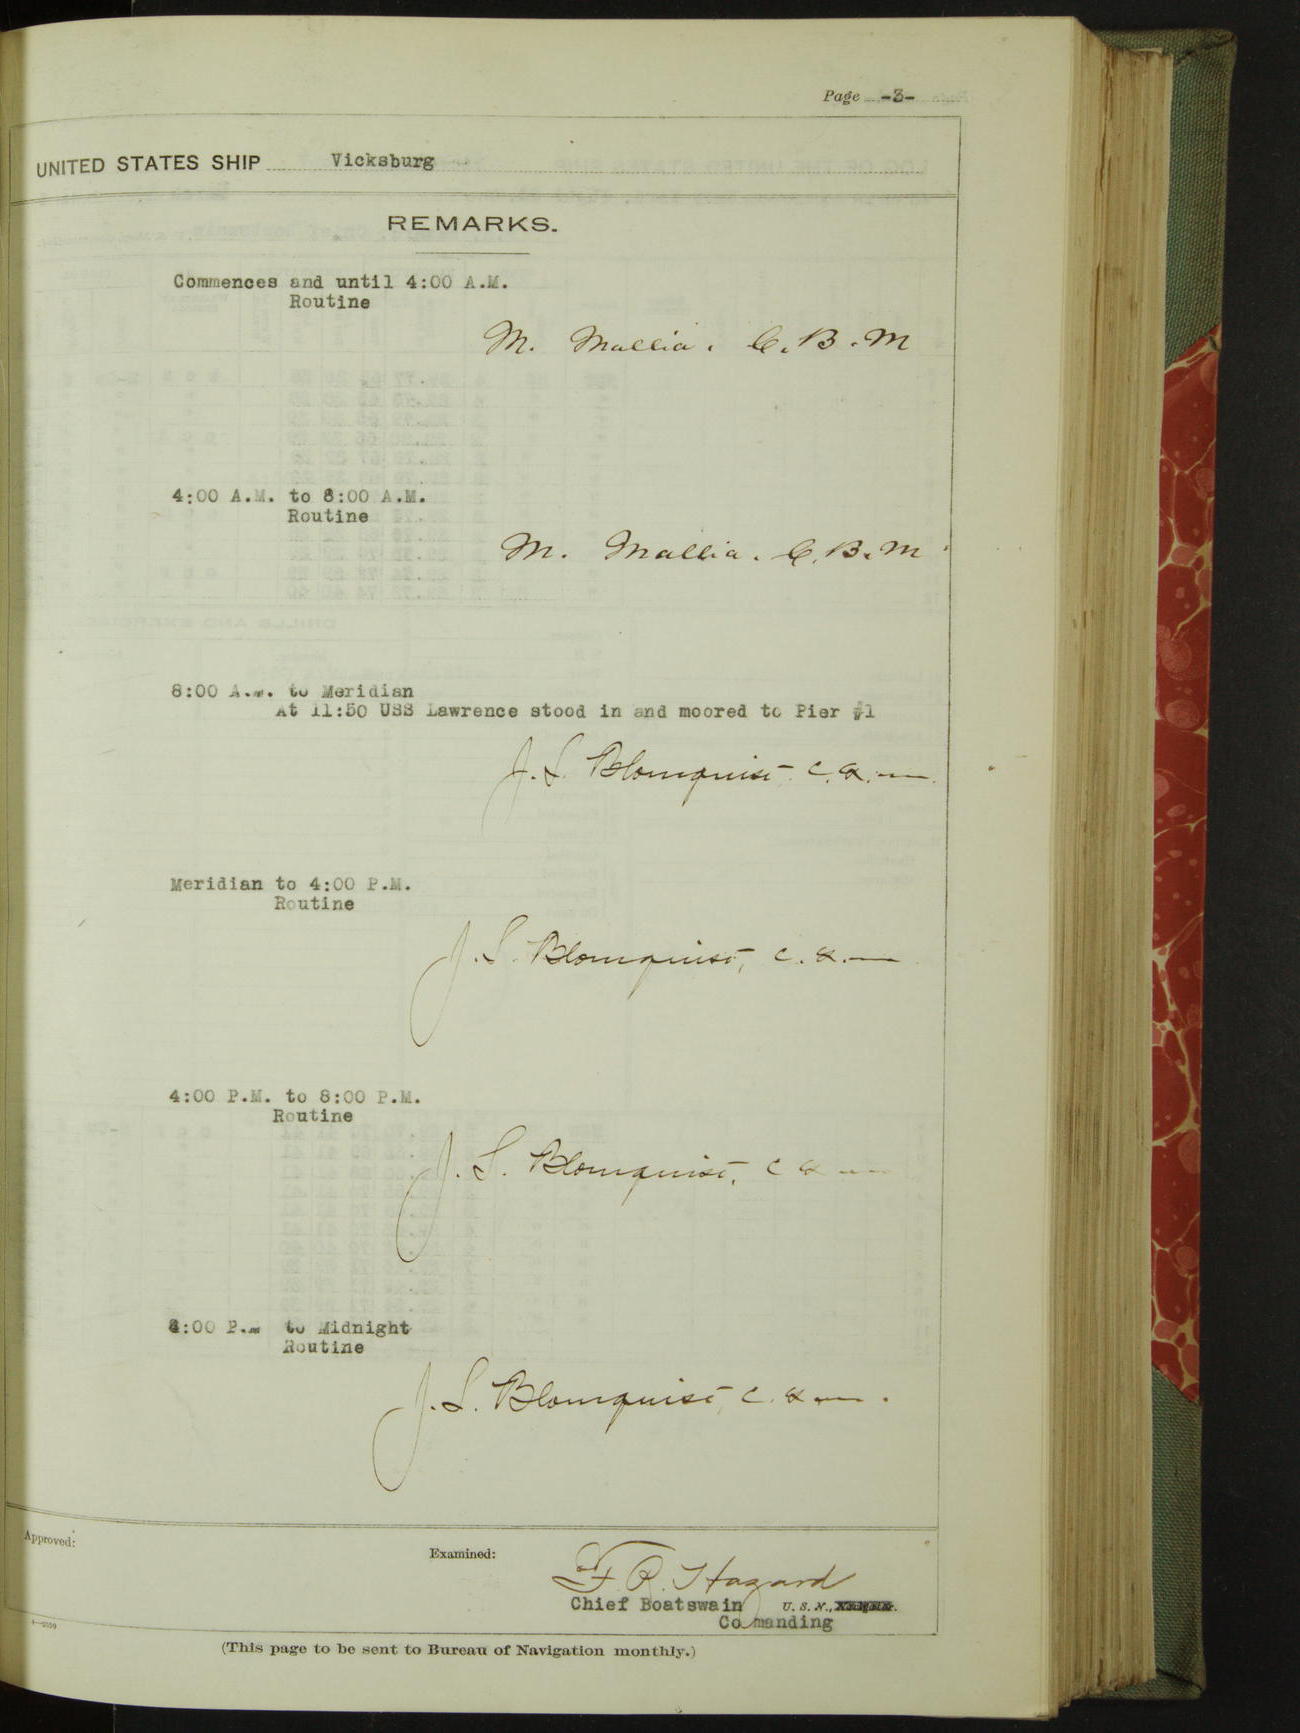 Page -3-
UNITED STATES SHIP Vicksburg
REMARKS.
Commences and until 4:00 A.M.
Routine
M. Mallia. C.B.M
4:00 A.M. to 8:00 A.M.
Routine
M. Mallia. C.B.M
8:00 A.M. to Meridian
At 11:50 USS Lawrence stood in and moored to Pier #1
J. S. Blomquist. C.
Meridian to 4:00 P.M.
Routine
J. S. Blomquist, C.
4:00 P.M. to 8:00 P.M.
Routine
J. S. Blomquist, C
8:00 P.M to Midnight
Routine
J. S. Blomquist, C.
Approved:
Examined:
F. R. Hazard
Chief Boatswain U. S. N.,
Commanding
(This page to be sent to Bureau of Navigation monthly.)